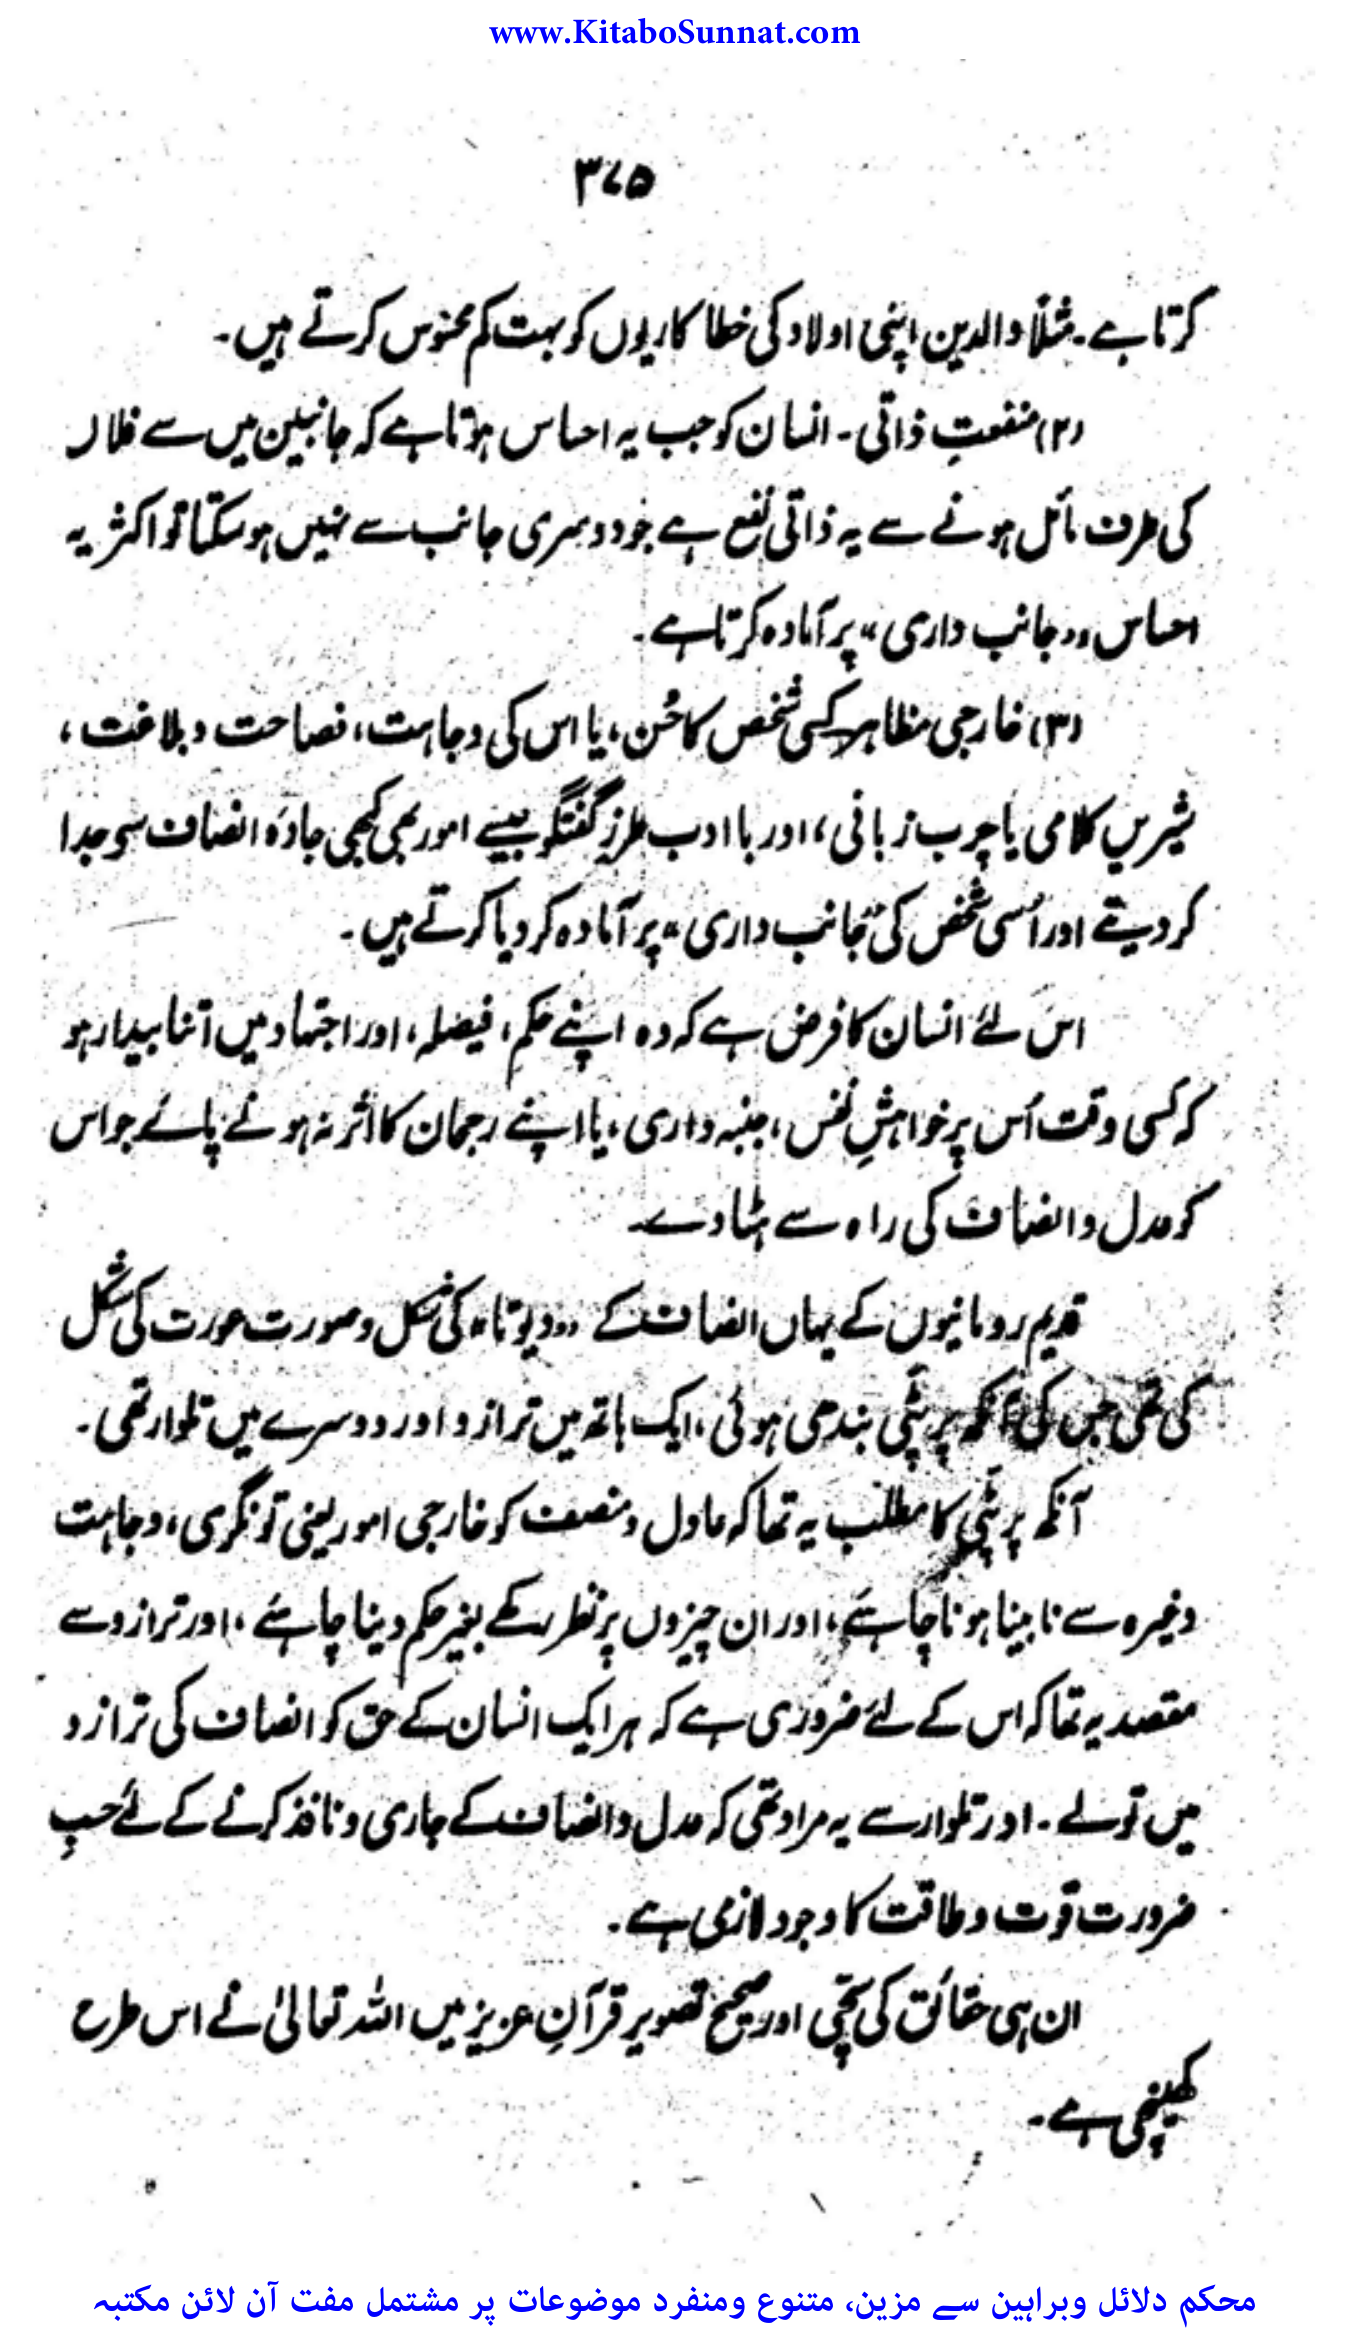 www.KitaboSunnat.com
۳۷۵
کرتا ہے۔ مثلاً والدین اپنی اولاد کی خطا کاریوں کو بہت کم محسوس کرتے ہیں۔
(۲) منفعتِ ذاتی۔ انسان کو جب یہ احساس ہوتا ہے کہ جانبین میں سے فلاں
کی طرف مائل ہونے سے یہ ذاتی نفع ہے جو دوسری جانب سے نہیں ہو سکتا تو اکثر یہ
احساس ”جانب داری“ پر آمادہ کرتا ہے۔
(۳) خارجی مظاہر کسی شخص کا حُسن، یا اس کی وجاہت، فصاحت و بلاغت،
شیریں کلامی یا چرب زبانی، اور با ادب طرزِ گفتگو جیسے امور بھی کبھی جادۂ انصاف سے جدا
کر دیتے اور اُسی شخص کی ”جانب داری“ پر آمادہ کر دیا کرتے ہیں۔
اس لئے انسان کا فرض ہے کہ وہ اپنے حکم، فیصلہ، اور اجتہاد میں اتنا بیدار ہو
کہ کسی وقت اُس پر خواہشِ نفس، جنبہ داری، یا اپنے رجحان کا اثر نہ ہونے پائے جو اس
کو عدل و انصاف کی راہ سے ہٹا دے۔
قدیم رومانیوں کے یہاں انصاف کے ”دیوتا“ کی شکل و صورت عورت کی شکل
کی تھی جس کی آنکھ پر پٹی بندھی ہوئی، ایک ہاتھ میں ترازو اور دوسرے میں تلوار تھی۔
آنکھ پر پٹی کا مطلب یہ تھا کہ عادل و منصف کو خارجی امور یعنی تونگری، وجاہت
وغیرہ سے نابینا ہونا چاہئے، اور ان چیزوں پر نظر رکھے بغیر حکم دینا چاہئے، اور ترازو سے
مقصد یہ تھا کہ اس کے لئے ضروری ہے کہ ہر ایک انسان کے حق کو انصاف کی ترازو
میں تولے۔ اور تلوار سے یہ مراد تھی کہ عدل و انصاف کے جاری و نافذ کرنے کے لئے حسبِ
ضرورت قوت و طاقت کا وجود لازمی ہے۔
ان ہی حقائق کی سچی اور صحیح تصویر قرآنِ عزیز میں اللہ تعالیٰ نے اس طرح
کھینچی ہے۔
محکم دلائل وبراہین سے مزین، متنوع ومنفرد موضوعات پر مشتمل مفت آن لائن مکتبہ